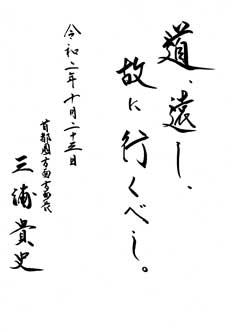 道、遠し、
故に行くべし。
令和二年十月二十五日
首都圏方面
三浦貴史